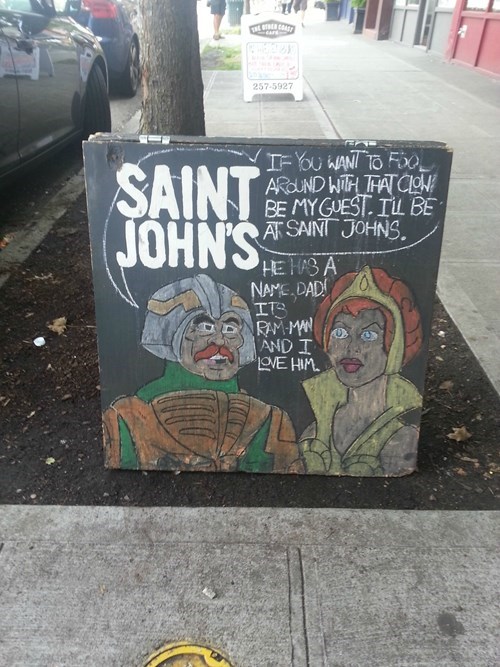 THE OTHER COAST
CAFE
257-5927
SAINT
JOHN'S
IF YOU WANT TO FOOL
AROUND WITH THAT CLOWN
BE MY GUEST. I'LL BE
AT SAINT JOHNS.
HE HAS A
NAME, DAD!
ITS
RAM-MAN
AND I
LOVE HIM.